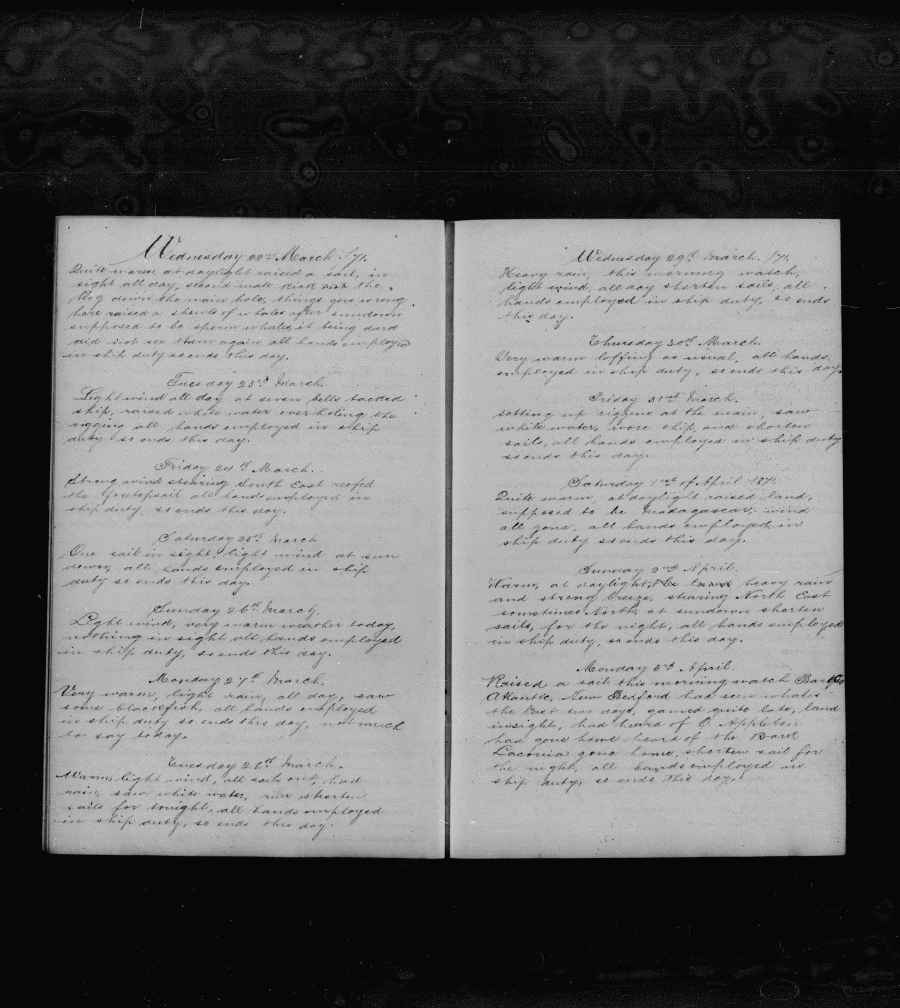 Wednesday 22nd March. /71.
Quite warm, at daylight raised a sail, in
sight all day, second mate the
Hog down the main hold, things goes wrong
here raised a showls of whales after sundown
supposed to be sperm whales, it being dard
did not see them again all hands employed
in ship duty so ends this day.
Tuesday 23rd March.
Light wind all day at seven bells tacked
ship, raised white water over holing the
rigging all hands employed in ship
duty so ends this day.
Friday 24th March.
Strong wind stearing South East reefed
the foretopsail all hands employed in
ship duty, so ends this day.
Saturday 25th March
One sail in sight, light wind at sun
down, all hands employed in ship
duty so ends this day.
Sunday 26th March.
Light wind, very warm weather today,
nothing in sight, all hands employed
in ship duty, so ends this day.
Monday 27th March.
Very warm, light rain, all day, saw
some blackfish, all hands employed
in ship duty so ends this day, not much
to say today.
Tuesday 28th March.
Warm, light wind, all sails out, had
rain, saw white water, shorten
sails for tonight, all hands employed
in ship duty, so ends this day.
Wednesday 29th March. /71.
Heavy rain, this morning watch,
light wind, all day shorten sails, all
hands employed in ship duty, so ends
this day.
Thursday 30th March.
Very warm loffing as usual, all hands,
employed in ship duty, so ends this day.
Friday 31st March.
setting up riggins at the main, saw
white water, wore ship, and shorten
sails, all hands employed in ship duty
so ends this day.
Saturday 1st of April 1871.
Quite warm, at daylight raised land,
supposed to be Madagascar, wind
all gone, all hands employed in
ship duty so ends this day.
Sunday 2nd April.
Warm, at daylight, heavy rain
and strong breeze, staring North East
sometimes North, at sundown shorten
sails, for the night, all hands employed
in ship duty, so ends this day.
Monday 3rd April.
Raised a sail this morning watch Barque
Atlantic, New Bedford had seen whales
the last two days, gamed quite late, land
insight, had heard of C. Appleton
had gone home heard of the Bark
Laconia gone home, shorten sail for
the night, all hands employed in
ship duty, so ends this day.